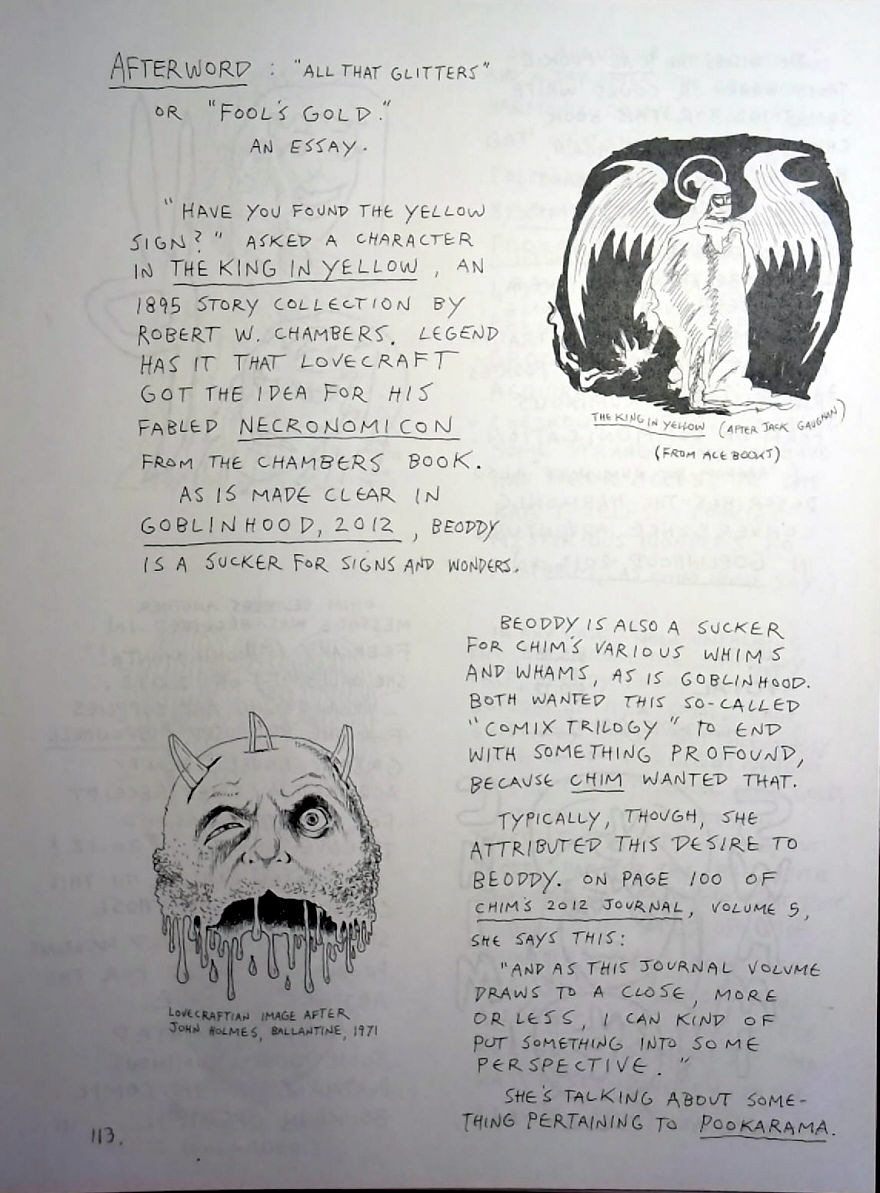 AFTERWORD : "ALL THAT GLITTERS"
OR "FOOL'S GOLD."
AN ESSAY.
"HAVE YOU FOUND THE YELLOW
SIGN?" ASKED A CHARACTER
IN THE KING IN YELLOW, AN
1895 STORY COLLECTION BY
ROBERT W. CHAMBERS. LEGEND
HAS IT THAT LOVECRAFT
GOT THE IDEA FOR HIS
FABLED NECRONOMICON
FROM THE CHAMBERS BOOK.
AS IS MADE CLEAR IN
GOBLINHOOD, 2012, BEODDY
IS A SUCKER FOR SIGNS AND WONDERS.
THE KING IN YELLOW (AFTER JACK GAUGHAN)
(FROM ACE BOOKS)
BEODDY IS ALSO A SUCKER
FOR CHIM'S VARIOUS WHIMS
AND WHAMS, AS IS GOBLINHOOD.
BOTH WANTED THIS SO-CALLED
"COMIX TRILOGY" TO END
WITH SOMETHING PROFOUND,
BECAUSE CHIM WANTED THAT.
TYPICALLY, THOUGH, SHE
ATTRIBUTED THIS DESIRE TO
BEODDY. ON PAGE 100 OF
CHIM'S 2012 JOURNAL, VOLUME 5,
SHE SAYS THIS:
"AND AS THIS JOURNAL VOLUME
DRAWS TO A CLOSE, MORE
OR LESS, I CAN KIND OF
PUT SOMETHING INTO SOME
PERSPECTIVE."
SHE'S TALKING ABOUT SOME-
THING PERTAINING TO POOKARAMA.
LOVECRAFTIAN IMAGE AFTER
JOHN HOLMES, BALLANTINE, 1971
113.